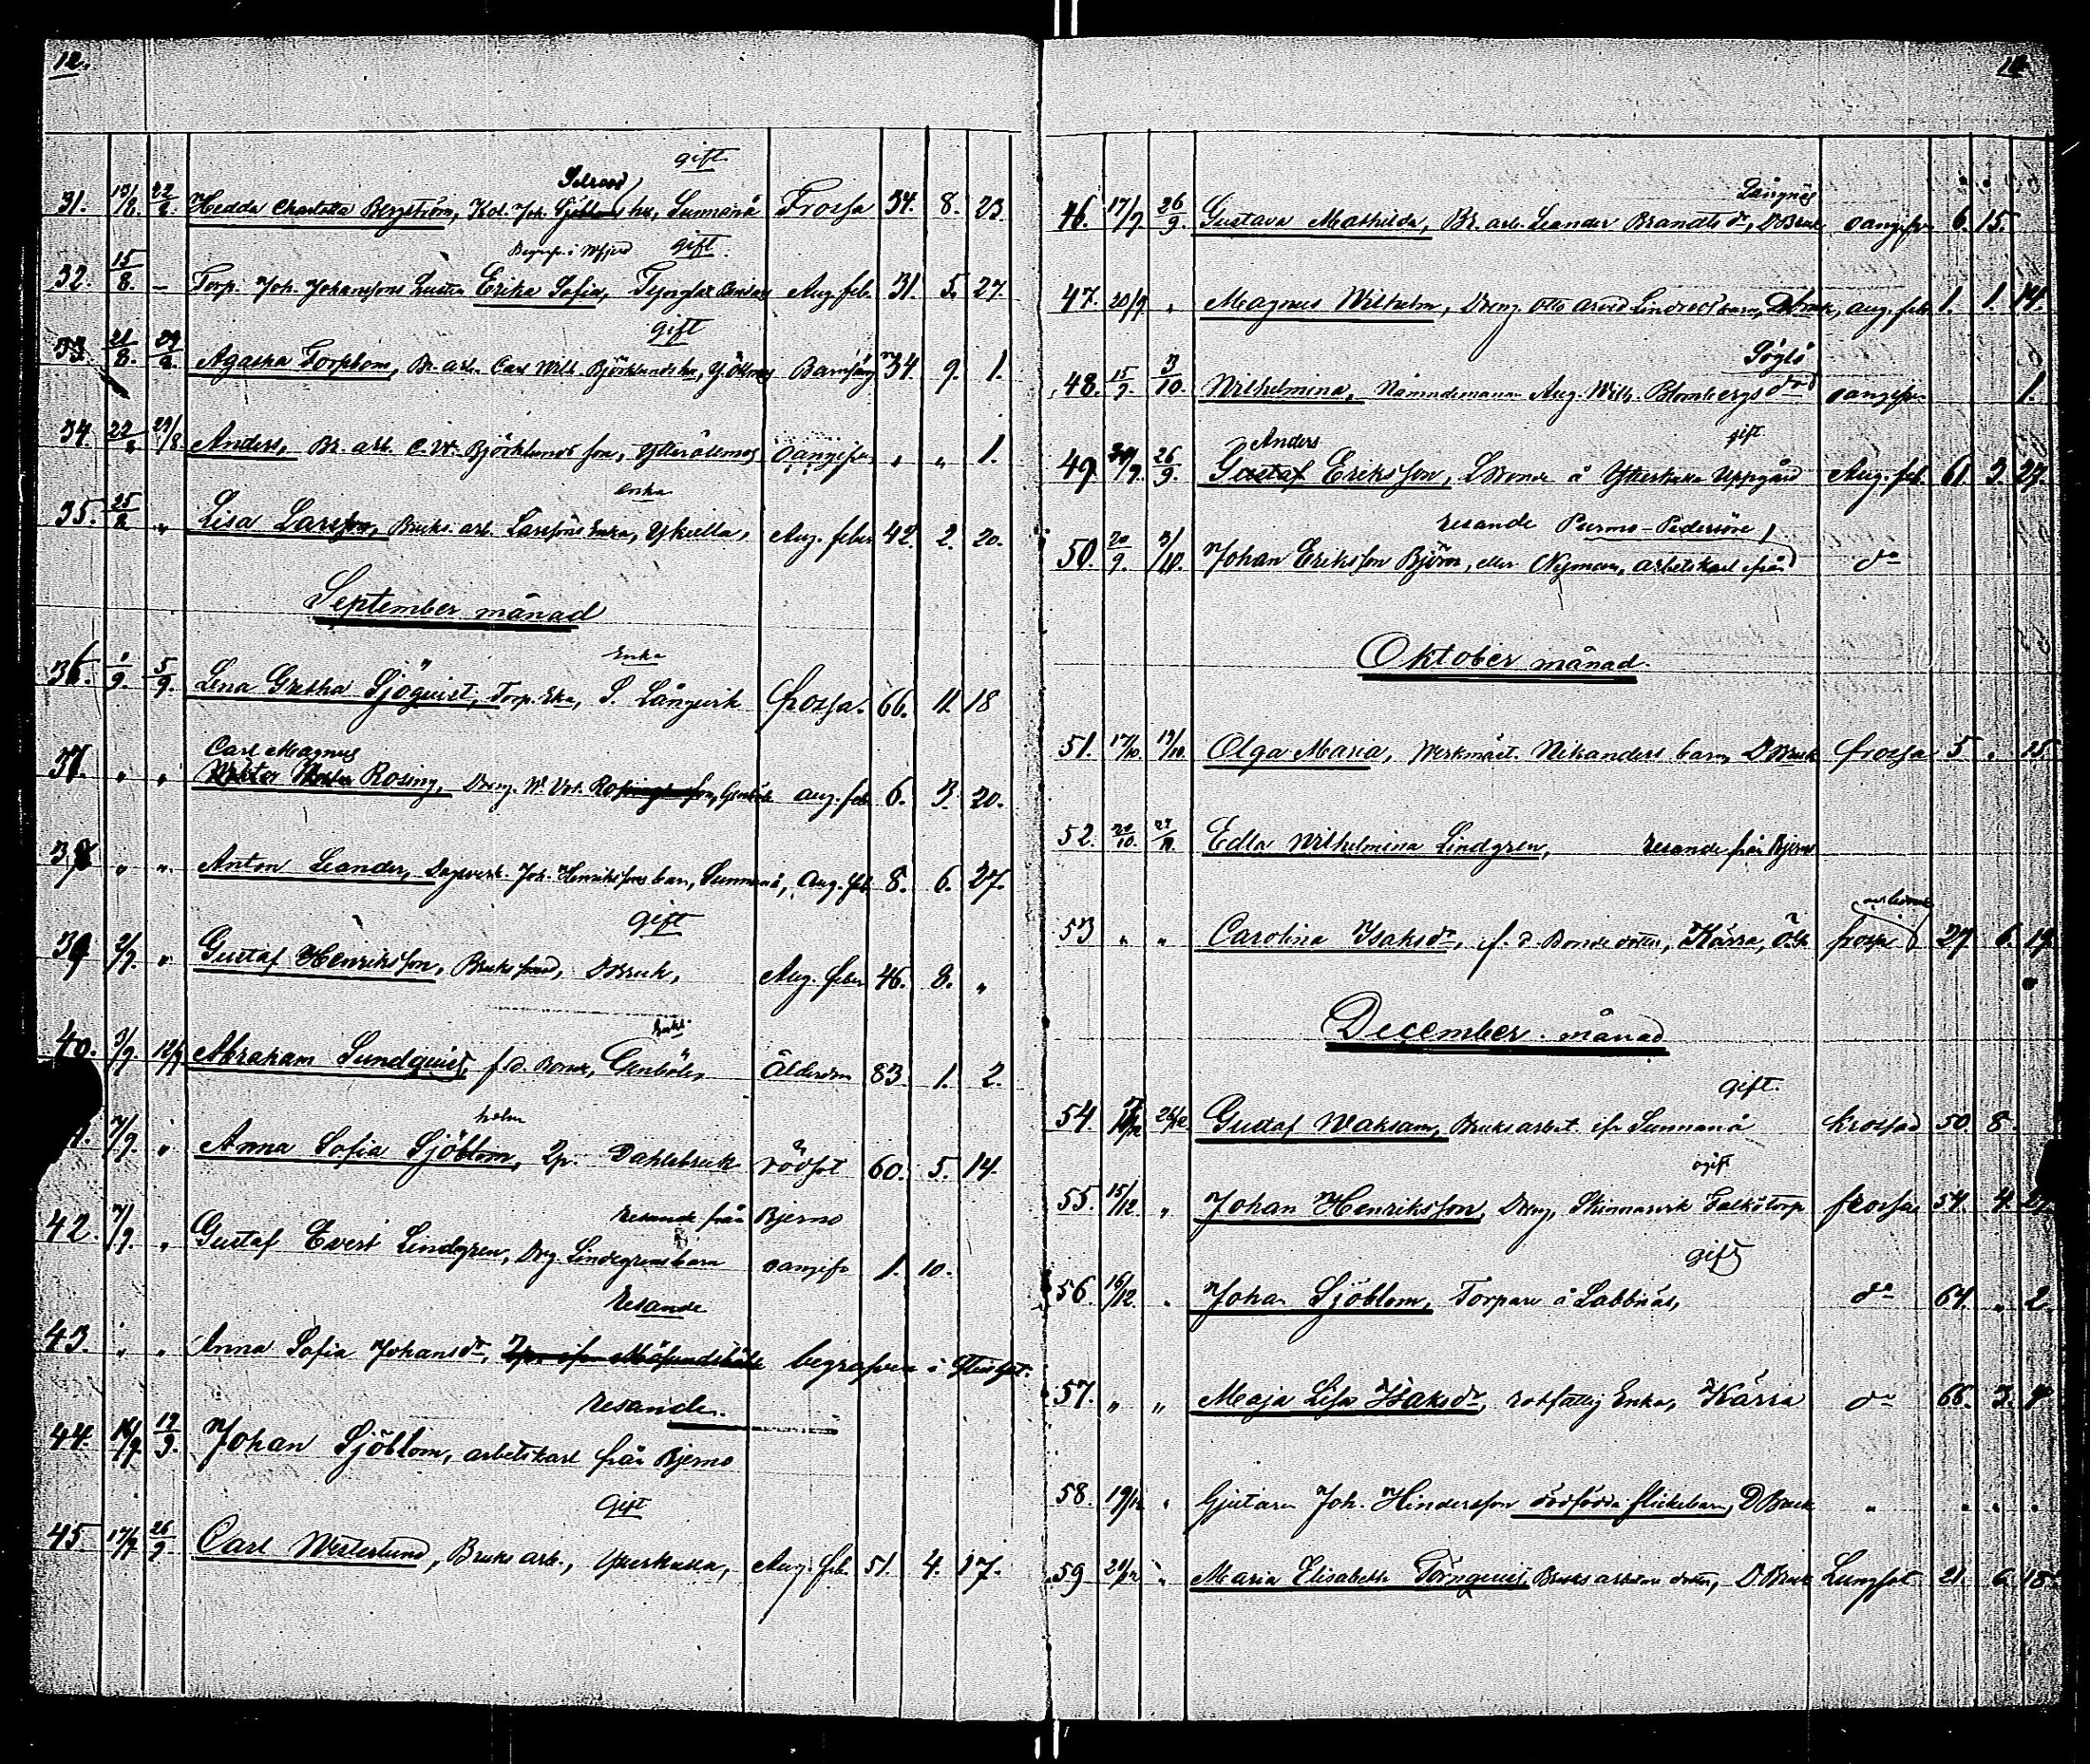 12.
gift
31. 13/8. 22/8. Hedda Charlotta Bergström, Kol. Joh. hu, Sunnanå Frossa 34. 8. 23.
gift
32. 15/8. – Torp. Joh. Johanssons hustru Erika Sofia, Aug. feb. 31. 5. 27.
gift
33. 21/8. 29/8. Agatha Torpbom, Br. arb. Carl Wilh. Björklunds hu, Y. Ölmos Barnsäng 34 9. 1.
34. 22/8 29/8 Anders, Br. arb. C. W. Björklunds son, Ytterölmos oangifv. „ „ 1.
Enka
35. 25/8 „ Lisa Larsson, Bruks. arb. Larssons Enka, Ykulla, Aug. feber 42. 2. 20.
September månad
Enka
36. 1/9. 5/9. Lena Gretha Sjöqvist, Torp. Eka, S. Långvik frossa. 66. 11. 18
Carl Magnus
37. „ „ Rosing, Dreng. W. Genböle aug. feb 6. 3. 20.
38 „ „ Anton Leander, Dagsverk. Joh. Henrikssons barn, Sunnanå, Aug. feb 8. 6. 27.
gift
39 2/9. „ Gustaf Henriksson, Bruks smed, D Bruk, Aug. feber 46. 8. „
Enkl.
40. 3/9. 12/9 Abraham Sundquist, f.d. Bonde, Genböle, Ålderdom 83. 1. 2.
holm
7/9. „ Anna Sofia Sjöblom, Dahlsbruk rödsot 60. 5. 14.
resande från Bjerno
42. 7/9. „ Gustaf Evert Lindgren, Drg. Lindegrens barn oangifv 1. 10.
resande
43. „ „ Anna Sofia Johansdr, begrafven i
resande.
44. 16/9. 19/9. Johan Sjöblom, arbetskarl från Bjerno
Gift
45 17/9 26/9 Carl Westerlund, Bruks arb., Ytterkulla, Aug. feb. 51. 4. 17.
Långnäs
46. 17/9. 26/9. Gustava Mathilda, Br. arb. Leander Brandts dr, D Bruk oangifv. 6. 15.
47. 20/9. „ Magnus Wilhelm, Dreng. Otto Arvid Lindroos barn, D Bruk, aug. feb. 1. 1. 14.
Söglö
48. 15/9. 3/10. Wilhelmina, Nämndemann Aug. Wilh. Blombergs dr oangifv. 1.
Anders gift
49 26/9. Gustaf Eriksson, Bonde å Ytterkulla Uppgård Aug. feb. 61. 3. 27.
resande Purmo-Pedersöre
50. 20/9. 3/10. Johan Eriksson Björn, eller Nyman, arbetskarl ifrån do
Oktober månad.
51. 17/10. 19/10. Olga Maria, Werkmäst. Nikanders barn, D Bruk frossa 5 „ 15.
52. Edla Wilhelmina Lindgren, resande från Bjerno
53 „ „ Carolina Isaksdr, f. d. Bonde dotter, Kärra, frossa 27 6. 19.
December månad
gift.
54. 26/12. Gustaf Waksam, Bruksarbet. ifr Sunnanå frossa 50. 8.
ogift
55. 15/12. „ Johan Henriksson, Dreng, Falkötorp frossa 54. 4.
gift
56. 16/12. „ Johan Sjöblom, Torpare å Labbnäs, do 64. „ 2.
57. „ „ Maja Lisa Isaksdr, rotfattig Enka, Kärra do 66. 3. 4
58. 19/12 „ Gjutare Joh. Hindersson dödfödda flickebarn, D Bruk „ „ „ „
59 21/12 „ Maria Elisabeth Törnqvist, Bruks arbetare dotter, D. Bruk Lungsot 21. 6. 18.